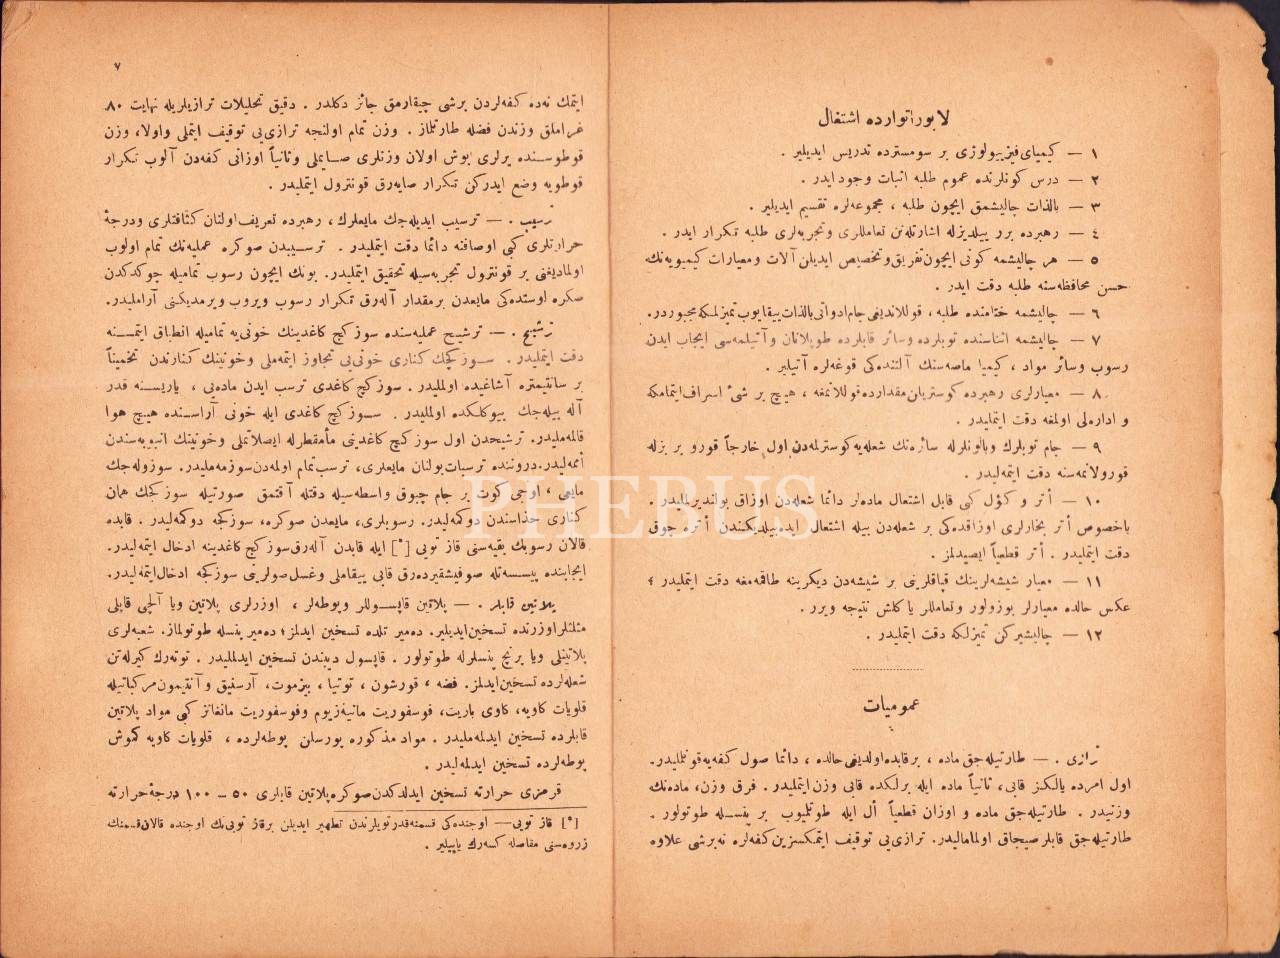 لابوراتوارده اشتغال
١ — كيمياى فيزيولوژى بر سومسترده تدريس ايديلير .
٢ — درس كونلرنده عموم طلبه اثبات وجود ايدر .
٣ — بالذات چاليشمق ايچون طلبه ، مجموعه‌لره تقسيم ايديلير .
٤ — رهبرده برر ييلديزله اشارتله‌نن تعامللرى وتجربه‌لرى طلبه تكرار ايدر .
٥ — هر چاليشمه كونى ايچون تفريق وتخصيص ايديلن آلات ومعيارات كيميويه‌نك
حسن محافظه‌سنه طلبه دقت ايدر .
٦ — چاليشمه ختامنده طلبه ، قوللانديغى جام ادواتى بالذات ييقايوب تميزلمكه مجبوردر.
٧ — چاليشمه اثناسنده توبلرده وسائر قابلرده طوپلانان وآتيلمه‌سى ايجاب ايدن
رسوب وسائر مواد ، كيميا ماصه‌سنك آلتنده‌كى قوغه‌لره آتيلير .
٨ — معيارلرى رهبرده كوستريلن مقدارده قوللانمغه ، هيچ بر شئ اسراف ايتمامكه
و اداره‌لى اولمغه دقت ايتمليدر .
٩ — جام توپلرك وبالونلرله سائره‌نك شعله‌يه كوسترلمه‌دن اول خارجاً قورو بر بزله
قورولانمه‌سنه دقت ايتمه‌ليدر .
١٠ — أتر و كؤل كبى قابل اشتعال ماده‌لر دائما شعله‌دن اوزاق بولنديريلمليدر .
باخصوص أتر بخارلرى اوزاقده‌كى بر شعله‌دن بيله اشتعال ايده‌بيلديكندن أتره چوق
دقت ايتمليدر . أتر قطعياً ايصيدلمز .
١١ — معيار شيشه‌لرينك قپاقلرينى بر شيشه‌دن ديكرينه طاقمه‌مغه دقت ايتمليدر ؛
عكس حالده معيارلر بوزولور وتعامللر ياكلش نتيجه ويرر .
١٢ — چاليشيركن تميزلكه دقت ايتمليدر .
عموميات
ترازى . — طارتيله‌جق ماده ، بر قابده اولديغى حالده ، دائما صول كفه‌يه قونلمليدر.
اول امرده يالكز قابى، ثانياً ماده ايله برلكده قابى وزن ايتمليدر. فرق وزن، ماده‌نك
وزنيدر . طارتيله‌جق ماده و اوزان قطعياً أل ايله طوتلميوب بر پنسله طوتولور .
طارتيله‌جق قابلر صيجاق اولماماليدر. ترازى‌يى توقيف ايتمكسزين كفه‌لره نه برشى علاوه
٧
ايتمك نه‌ده كفه‌لردن برشى چيقارمق جائز دكلدر . دقيق تحليلات ترازيلريله نهايت ٨٠
غراملق وزندن فضله طارتلماز . وزن تمام اولنجه ترازى‌يى توقيف ايتملى واولا، وزن
قوطوسنده يرلرى بوش اولان وزنلرى صايملى وثانياً اوزانى كفه‌دن آلوب تكرار
قوطويه وضع ايدركن تكرار صايه‌رق قونترول ايتمليدر .
ترسيب . — ترسيب ايديله‌جك مايعلرك ، رهبرده تعريف اولنان كثافتلرى ودرجهٔ
حرارتلرى كبى اوصافنه دائما دقت ايتمليدر . ترسيبدن صوكره عمليه‌نك تمام اولوب
اولماديغنى بر قونترول تجربه‌سيله تحقيق ايتمليدر. بونك ايچون رسوب تماميله چوكدكدن
صكره اوستده‌كى مايعدن برمقدار آله‌رق تكرار رسوب ويروب ويرمديكنى آراملیدر.
ترشيح . — ترشيح عمليه‌سنده سوزكج كاغدينك خونى‌يه تماميله انطباق ايتمسنه
دقت ايتمليدر . سوزكجك كنارى خونى‌يى تجاوز ايتمه‌ملى وخونينك كنارندن تخميناً
بر سانتيمتره آشاغيده اولمليدر . سوزكج كاغدى ترسب ايدن ماده‌يى ، ياريسنه قدر
آله بيله‌جك بيوكلكده اولمليدر . سوزكج كاغدى ايله خونى آراسنده هيچ هوا
قالمه‌مليدر. ترشيحدن اول سوزكج كاغدينى مأمقطرله ايصلاتملى وخونينك انبوبه‌سندن
أممه‌ليدر. دروننده ترسبات بولنان مايعلرى، ترسب تمام اولمه‌دن سوزمه‌مليدر. سوزوله‌جك
مايعى ، اوجى كوت بر جام چبوق واسطه‌سيله دقتله آقتمق صورتيله سوزكجك همان
كنارى حذاسندن دوكمه‌ليدر. رسوبلرى، مايعدن صوكره، سوزكجه دوكمه‌ليدر . قابده
قالان رسوبك بقيه‌سنى قاز تويى [*] ايله قابدن آله‌رق سوزكج كاغدينه ادخال ايتمه‌ليدر.
ايجابنده پيسه‌تله صو فيشقيرده‌رق قابى ييقاملى وغسل صولرينى سوزكجه ادخال ايتمه‌ليدر.
پلاتين قابلر . — پلاتين قاپسوللر وبوطه‌لر ، اوزرلرى پلاتين ويا آلچى قاپلى
مثلثلر اوزرنده تسخين ايديلير. ده‌مير تلده تسخين ايدلمز؛ ده‌مير پنسله طوتولماز. شعبه‌لرى
پلاتينلى ويا برنج پنسلرله طوتولور . قاپسول ديبندن تسخين ايدلمليدر . توته‌رك كيرله‌تن
شعله‌لرده تسخين ايدلمز. فضه ، قورشون ، توتيا ، بيزموت، آرسنيق و آنتيمون مركباتيله
قلويات كاويه، كاوى باريت، فوسفوريت مانيه‌زيوم وفوسفوريت مانغانز كبى مواد پلاتين
قابلرده تسخين ايدلمه‌مليدر . مواد مذكوره پورسلن بوطه‌لرده ، قلويات كاويه كموش
بوطه‌لرده تسخين ايدلمه‌ليدر .
قرمزى حرارته تسخين ايدلدكدن صوكره پلاتين قابلرى ٥٠ – ١٠٠ درجهٔ حرارته
[*] قاز تويى— اوجنده‌كى قسمنه قدر تويلرندن تطهير ايديلن بر قاز تويى‌نك اوجنده قالان قسمنك
زروه‌سنى مفاصله كسه‌رك ياپيلير .
PHEBUS